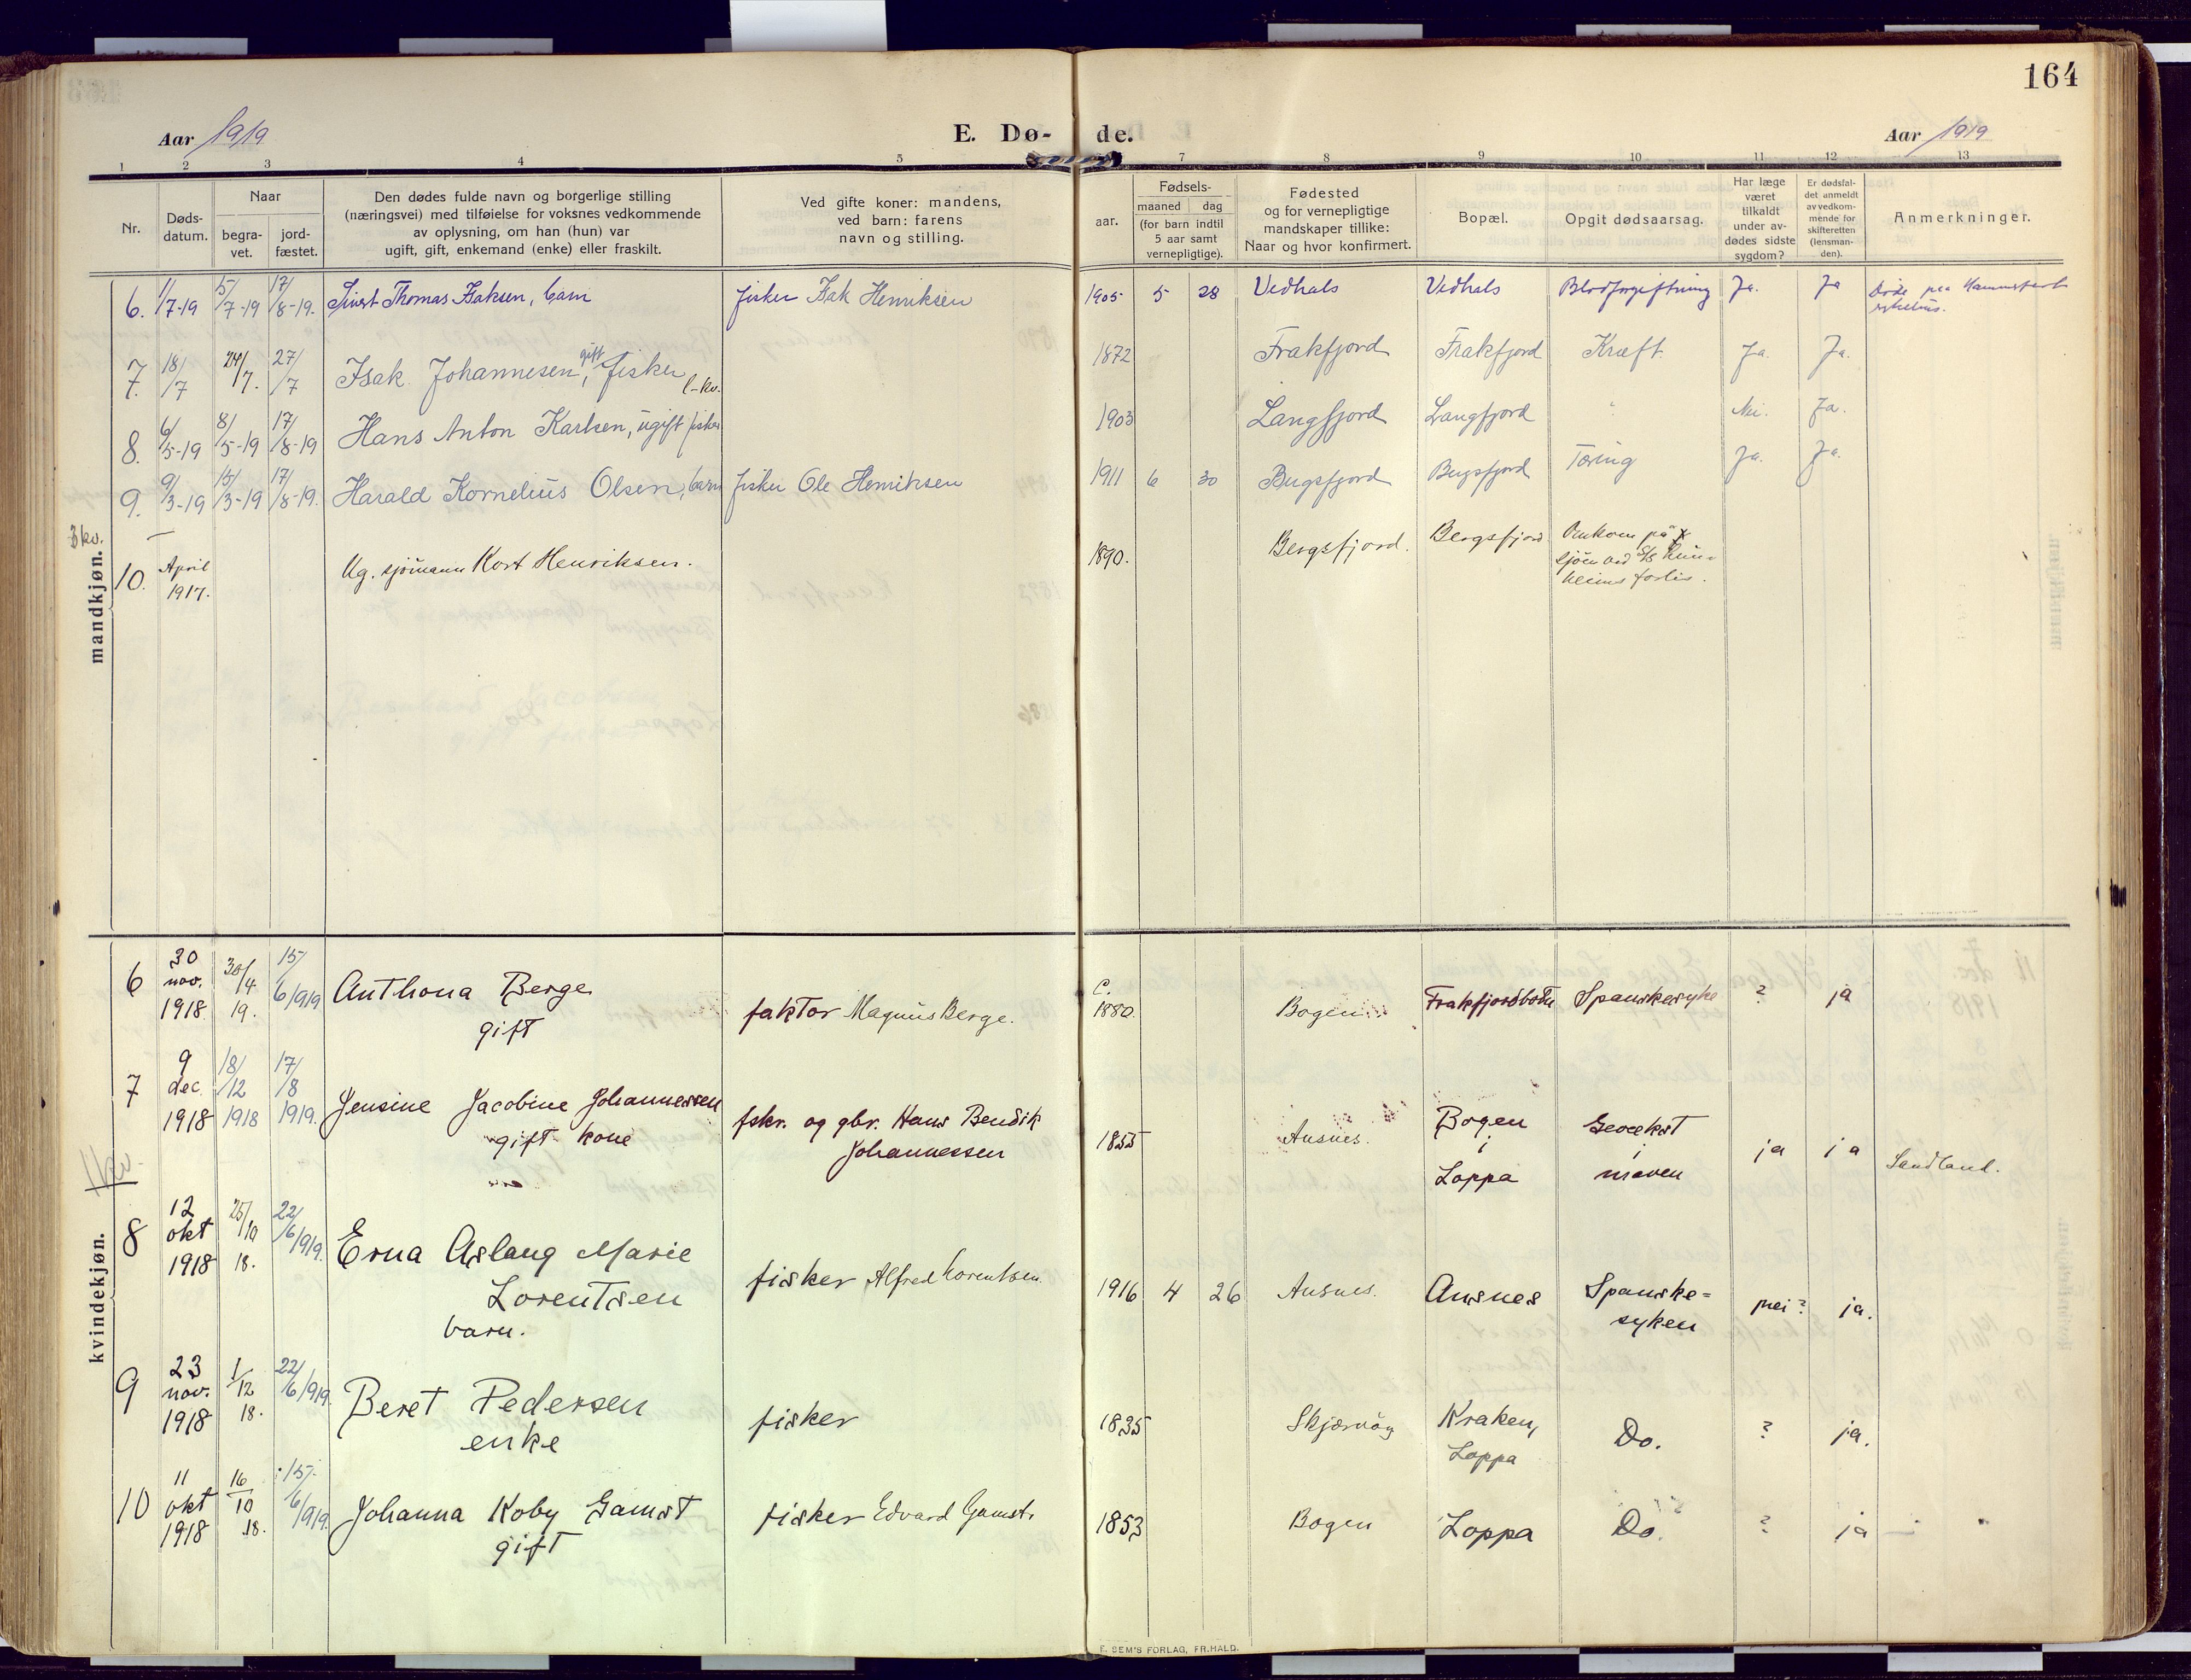 164
Aar 1919 E. Dø- de. Aar 1919
1 2 3 4 5 7 8 9 10 11 12 13
Nr.
Døds-
datum.
Naar
begra-
vet.
jord-
fæstet.
Den dødes fulde navn og borgerlige stilling
(næringsvei) med tilføielse for voksnes vedkommende
av oplysning, om han (hun) var
ugift, gift, enkemand (enke) eller fraskilt.
Ved gifte koner: mandens,
ved barn: farens
navn og stilling.
aar.
Fødsels-
maaned dag
(for barn indtil
5 aar samt
vernepligtige).
Fødested
og for vernepligtige
mandskaper tillike:
Naar og hvor konfirmert.
Bopæl.
Opgit dødsaarsag.
Har læge
været
tilkaldt
under av-
dødes sidste
sygdom?
Er dødsfal-
det anmeldt
av vedkom-
mende for
skifteretten
(lensman-
den).
Anmerkninger.
mandkjøn.
3 kv.
6. 1/7-19 5/7-19 17/8-19. Sivert Thomas Isaksen, barn fisker Isak Henriksen 1905 5 28 Vedhals Vedhals Blodforgiftning Ja. Ja Døde paa Hammerfest
sykehus.
7. 18/7 24/7. 27/7 Isak Johannesen, gift fisker 1872 Frakfjord Frakfjord Kræft. Ja. Ja.
l-kv.
8. 6/5-19 8/5-19 17/8-19 Hans Anton Karlsen, ugift fisker 1903 Langfjord Langfjord " Nei. Ja.
9. 9/3-19 15/3-19 17/8-19. Harald Kornelius Olsen, barn fisker Ole Henriksen 1911 6 30 Bugsfjord Bugsfjord Tæring Ja. Ja.
10. April
1917. Ug. sjömann Kort Henriksen. 1890. Bergsfjord. Bergsfjord Omkom på
sjöen ved S/S
heims forlis.
kvindekjøn.
6 30
nov.
1918 30/4
19. 15/6 1919 Anthona Berge
gift faktor Magnus Berge. c.
1880. Bogen Frakfjordbotn Spanskesyke ? ja
7 9
dec.
1918 18/12
1918 17/8
1919. Jensine Jacobine Johannessen
gift kone fskr. og gbr. Hans Bendik
Johannessen 1855 Ausnes. Bogen
i
Loppa Gevekst
i
maven ja ja Sandland.
8 12
okt
1918 25/10
18. 22/6 1919. Erna Aslaug Marie
Lorentsen
barn. fisker Alfred Lorentsen. 1916 4 26 Ausnes. Ausnes Spanske=
syken nei? ja.
9 23
nov.
1918 1/12
18. 22/6 1919. Beret Pedersen
enke fisker 1835 Skjærvöy Kraken,
Loppa Do. ? ja.
10 11
okt
1918 16/10
18. 15/6 1919. Johanna Koby Gamst
gift fisker Edvard Gamst. 1853 Bogen Loppa Do. ? ja
E. SEM'S FORLAG, FR.HALD.